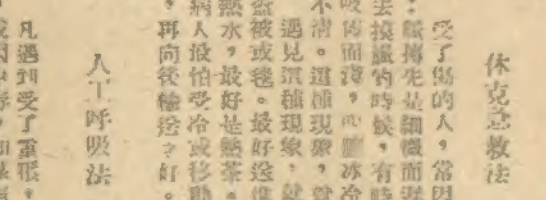 休克急救法
受了傷的人，常因
脈搏先是細微而遲
去摸脈的時候，有時
吸
而淺，四肢冰冷
不清。這種現象，就
遇見這種現象，就
蓋被或毯。最好送進
熱水，最好是熱茶。
病人最怕受冷或移動
，再向後輸送才好。
人工呼吸法
凡遇到受了重振，